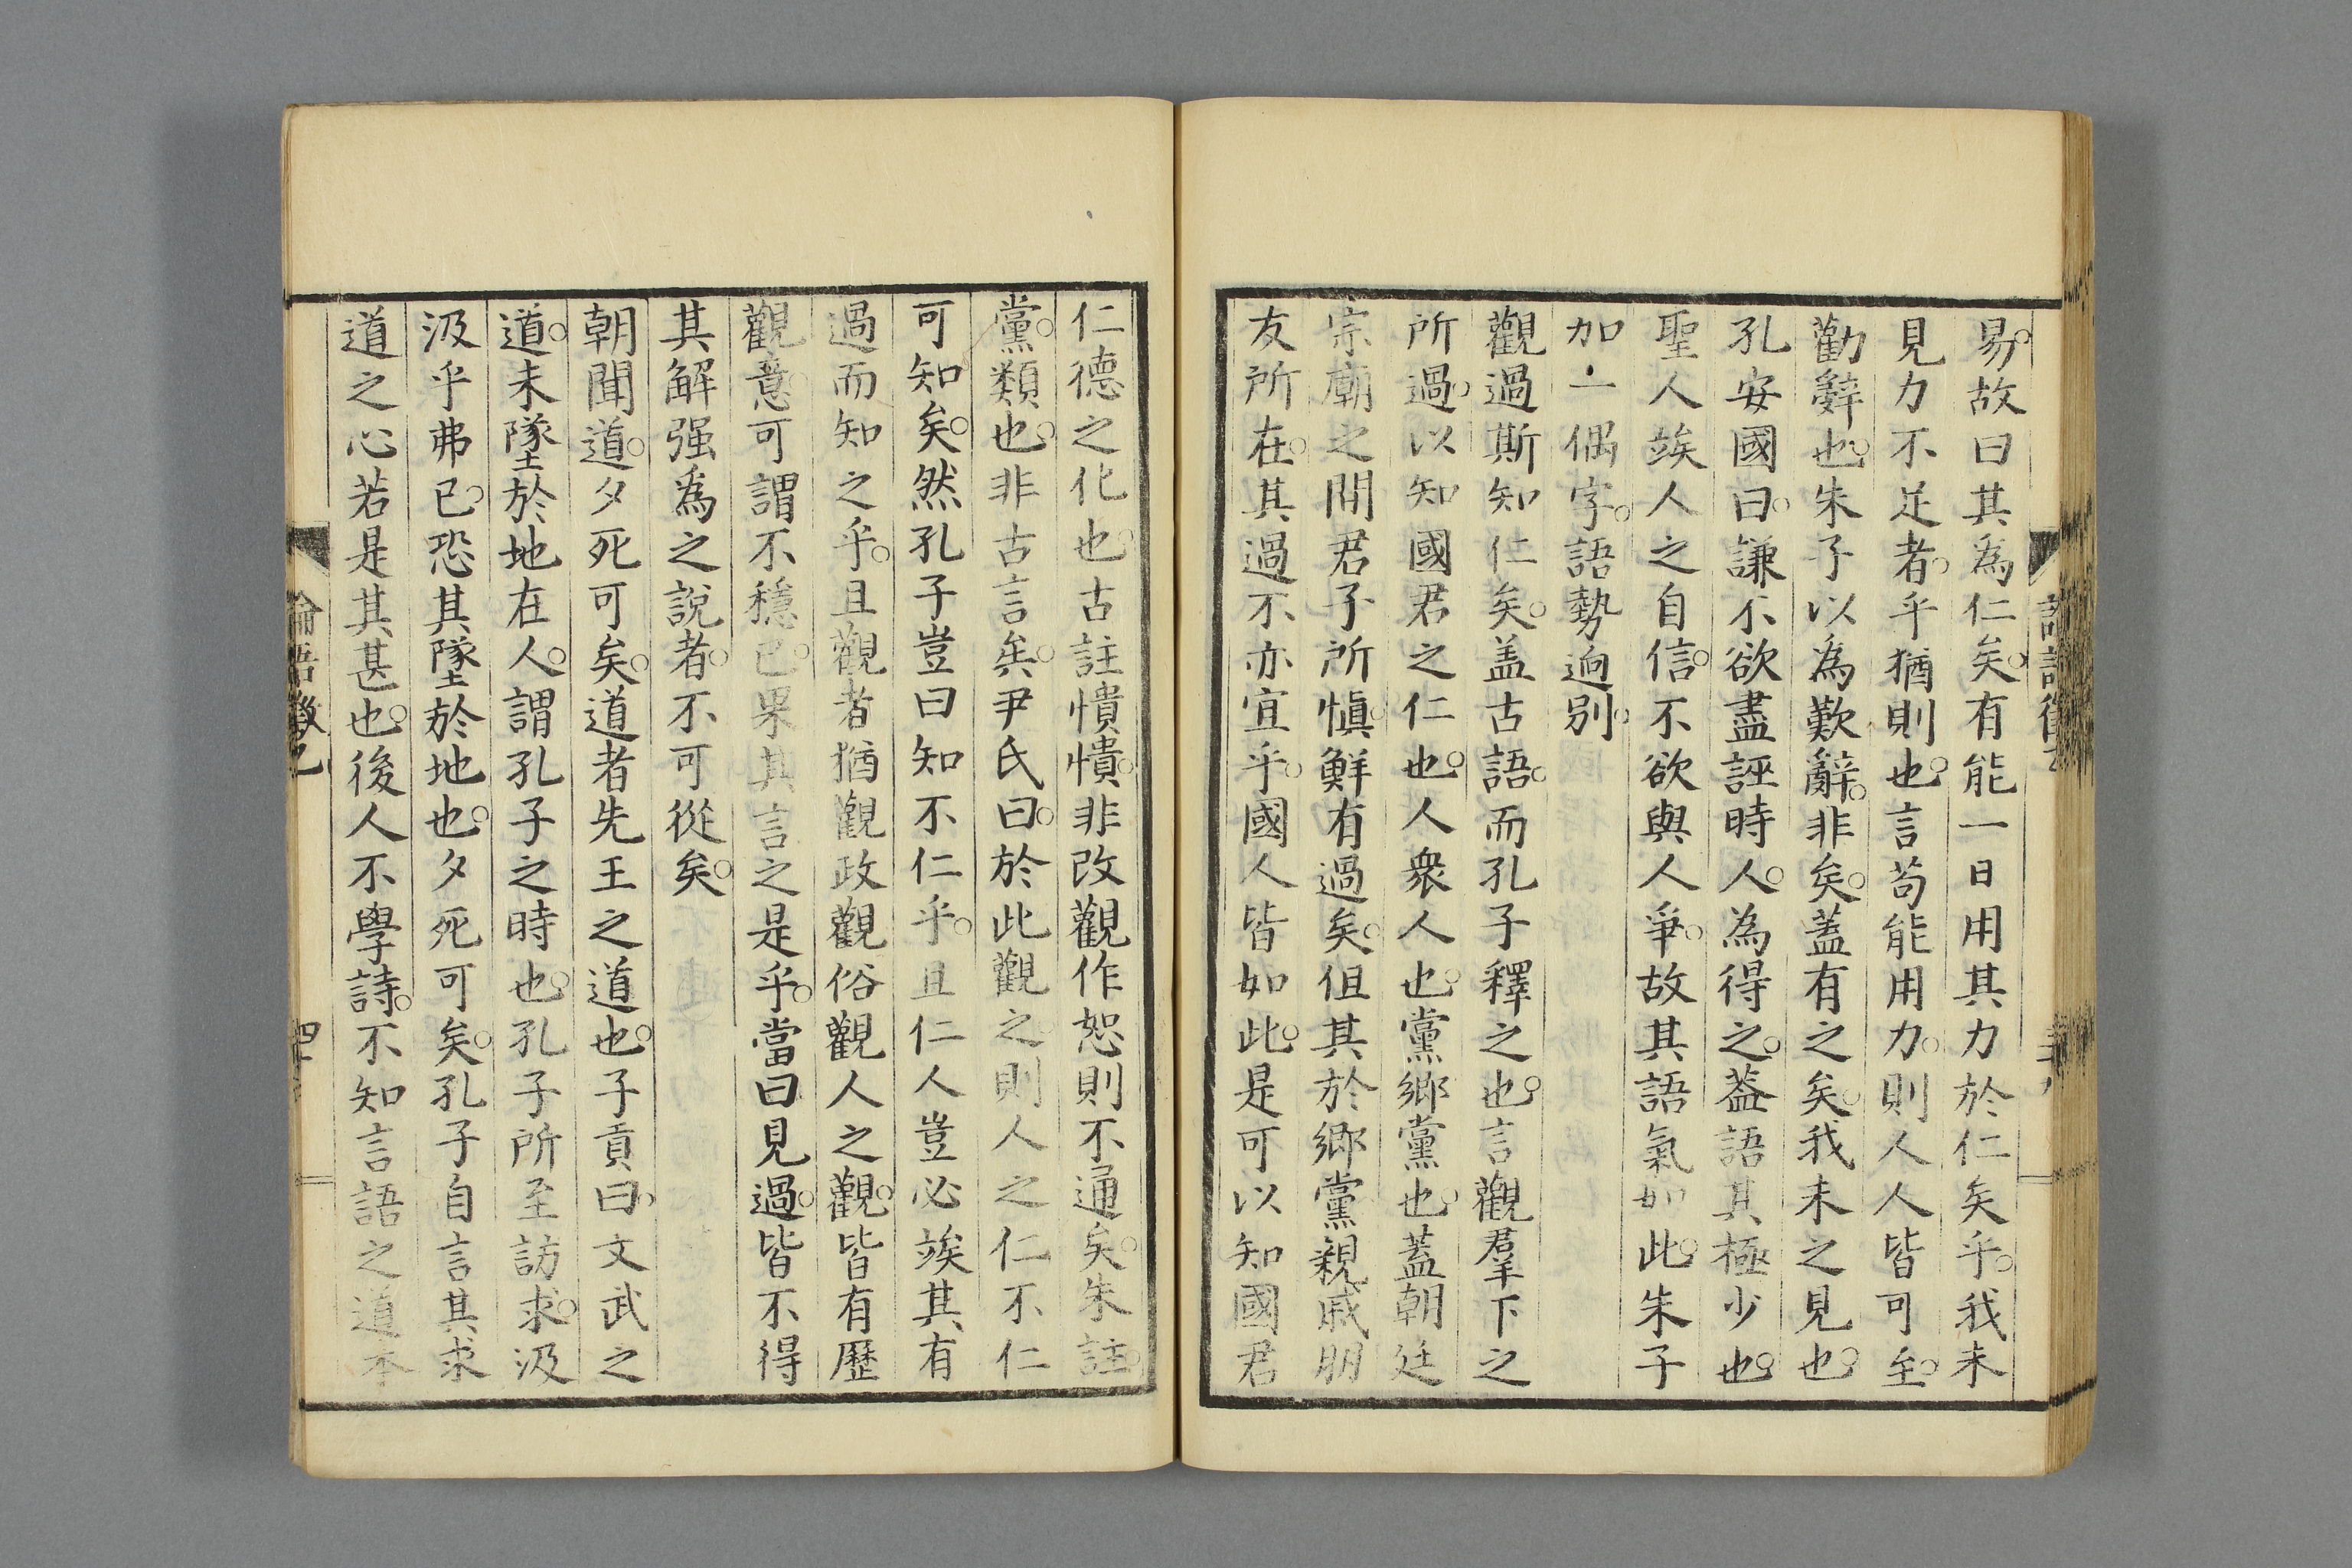 易故曰其爲仁矣有能一日用其力於仁矣乎我未
見力不足者乎猶則也言苟能用力則人人皆可至
勸辭也朱子以爲歎辭非矣蓋有之矣我未之見也
孔安國曰謙不欲盡誣時人爲得之蓋語其極少也
聖人竢人之自信不欲與人爭故其語氣如此朱子
加一偶字語勢逈別
觀過斯知仁矣蓋古語而孔子釋之也言觀羣下之
所過以知國君之仁也人衆人也黨鄉黨也蓋朝廷
宗廟之間君子所愼鮮有過矣伹其於鄉黨親戚朋
友所在其過不亦宜乎國人皆如此是可以知國君
仁德之化也古註憒憒非改觀作恕則不通矣朱註
黨類也非古言矣尹氏曰於此觀之則人之仁不仁
可知矣然孔子豈曰知不仁乎且仁人豈必竢其有
過而知之乎且觀者猶觀政觀俗觀人之觀皆有歷
觀意可謂不穩已果其言之是乎當曰見過皆不得
其解强爲之說者不可從矣
朝聞道夕死可矣道者先王之道也子貢曰文武之
道未墜於地在人謂孔子之時也孔子所至訪求汲
汲乎弗已恐其墜於地也夕死可矣孔子自言其求
道之心若是其甚也後人不學詩不知言語之道本
論語徵乙